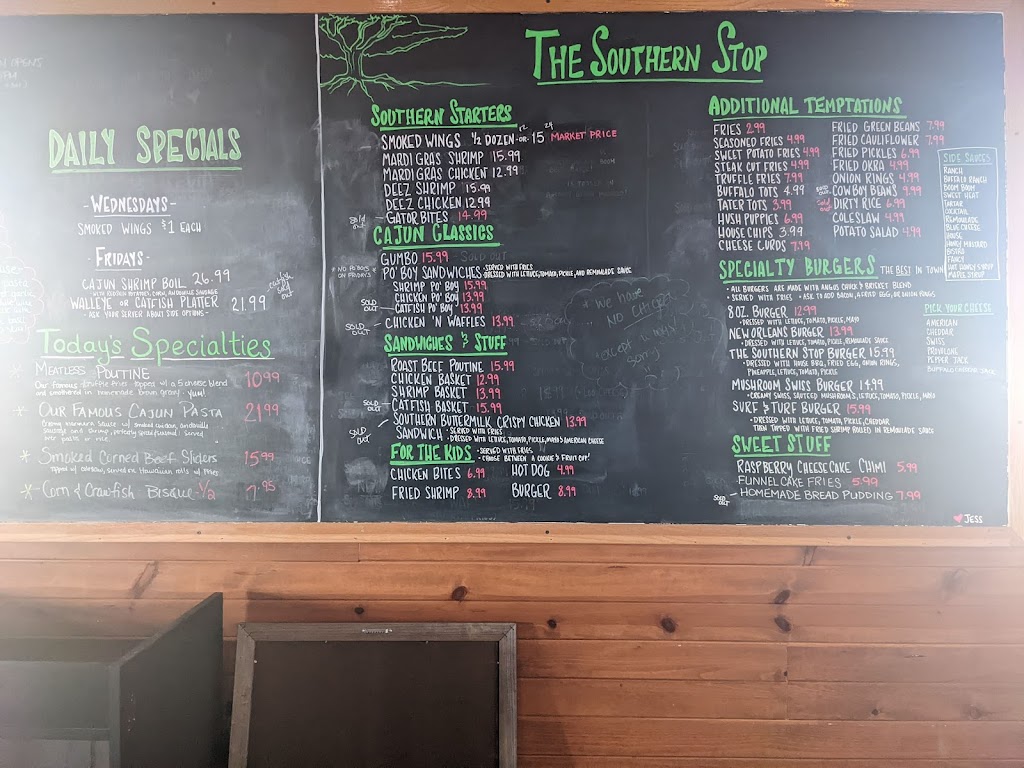 DAILY SPECIALS
- WEDNESDAYS -
SMOKED WINGS $1 EACH
- FRIDAYS -
CAJUN SHRIMP BOIL 26.99
WALLEYE OR CATFISH PLATTER 21.99
- ASK YOUR SERVER ABOUT SIDE OPTIONS -
catfish sold out
Today's Specialties
* MEATLESS POUTINE 10.99
Our famous truffle fries topped w/ a 5 cheese blend
and smothered in homemade brown gravy - yum!
* OUR FAMOUS CAJUN PASTA 21.99
Creamy marinara sauce w/ smoked chicken, andouille
sausage and shrimp, perfectly spiced (sautéed) served
over pasta or rice
* Smoked Corned Beef Sliders 15.99
topped w/ coleslaw, served on Hawaiian rolls w/ fries
* Corn & Crawfish Bisque - 1/2 7.95
THE SOUTHERN STOP
SOUTHERN STARTERS
SMOKED WINGS ½ DOZEN 12 -OR- 15 24 MARKET PRICE
MARDI GRAS SHRIMP 15.99
MARDI GRAS CHICKEN 12.99
DEEZ SHRIMP 15.99
DEEZ CHICKEN 12.99
Sold out GATOR BITES 14.99
CAJUN CLASSICS
GUMBO 15.99 - SOLD OUT
* NO PO'BOYS ON FRIDAYS *
PO' BOY SANDWICHES • SERVED WITH FRIES
• DRESSED WITH LETTUCE, TOMATO, PICKLE, AND REMOULADE SAUCE
SHRIMP PO' BOY 15.99
CHICKEN PO' BOY 13.99
SOLD OUT CATFISH PO' BOY 13.99
SOLD OUT CHICKEN 'N WAFFLES 13.99
SANDWICHES & STUFF
ROAST BEEF POUTINE 15.99
CHICKEN BASKET 12.99
SHRIMP BASKET 13.99
SOLD OUT CATFISH BASKET 15.99
SOLD OUT SOUTHERN BUTTERMILK CRISPY CHICKEN 13.99
SANDWICH • SERVED WITH FRIES
• DRESSED WITH LETTUCE, TOMATO, PICKLE, MAYO & AMERICAN CHEESE
FOR THE KIDS • SERVED WITH FRIES
• CHOOSE BETWEEN A COOKIE & FRUIT CUP!
CHICKEN BITES 6.99 HOT DOG 4.99
FRIED SHRIMP 8.99 BURGER 8.99
ADDITIONAL TEMPTATIONS
FRIES 2.99
SEASONED FRIES 4.99
SWEET POTATO FRIES 4.99
STEAK CUT FRIES 4.99
TRUFFLE FRIES 7.99
BUFFALO TOTS 4.99
TATER TOTS 3.99
HUSH PUPPIES 6.99
HOUSE CHIPS 3.99
CHEESE CURDS 7.99
FRIED GREEN BEANS 7.99
FRIED CAULIFLOWER 7.99
FRIED PICKLES 6.99
FRIED OKRA 4.99
ONION RINGS 4.99
COWBOY BEANS 9.99
Sold out DIRTY RICE 6.99
COLESLAW 4.99
POTATO SALAD 4.99
SIDE SAUCES
RANCH
BUFFALO RANCH
BOOM BOOM
SWEET HEAT
TARTAR
COCKTAIL
REMOULADE
BLUE CHEESE
HOUSE
HONEY MUSTARD
BISTRO
FANCY
HOT HONEY SYRUP
MAPLE SYRUP
SPECIALTY BURGERS THE BEST IN TOWN
• ALL BURGERS ARE MADE WITH ANGUS CHUCK & BRISKET BLEND
• SERVED WITH FRIES • ASK TO ADD BACON, A FRIED EGG, OR ONION RINGS
8 OZ. BURGER 12.99
• DRESSED WITH LETTUCE, TOMATO, PICKLE, MAYO
NEW ORLEANS BURGER 13.99
• DRESSED WITH LETTUCE, TOMATO, PICKLE, REMOULADE SAUCE
THE SOUTHERN STOP BURGER 15.99
• DRESSED WITH HOUSE BBQ, FRIED EGG, ONION RINGS,
PINEAPPLE, LETTUCE, TOMATO, PICKLE
MUSHROOM SWISS BURGER 14.99
• CREAMY SWISS, SAUTEED MUSHROOMS, LETTUCE, TOMATO, PICKLE, MAYO
SURF & TURF BURGER 15.99
• DRESSED WITH LETTUCE, TOMATO, PICKLE, CHEDDAR
THEN TOPPED WITH FRIED SHRIMP ROLLED IN REMOULADE SAUCE
PICK YOUR CHEESE
AMERICAN
CHEDDAR
SWISS
PROVOLONE
PEPPER JACK
SWEET STUFF
RASPBERRY CHEESECAKE CHIMI 5.99
FUNNEL CAKE FRIES 5.99
SOLD OUT HOMEMADE BREAD PUDDING 7.99
JESS